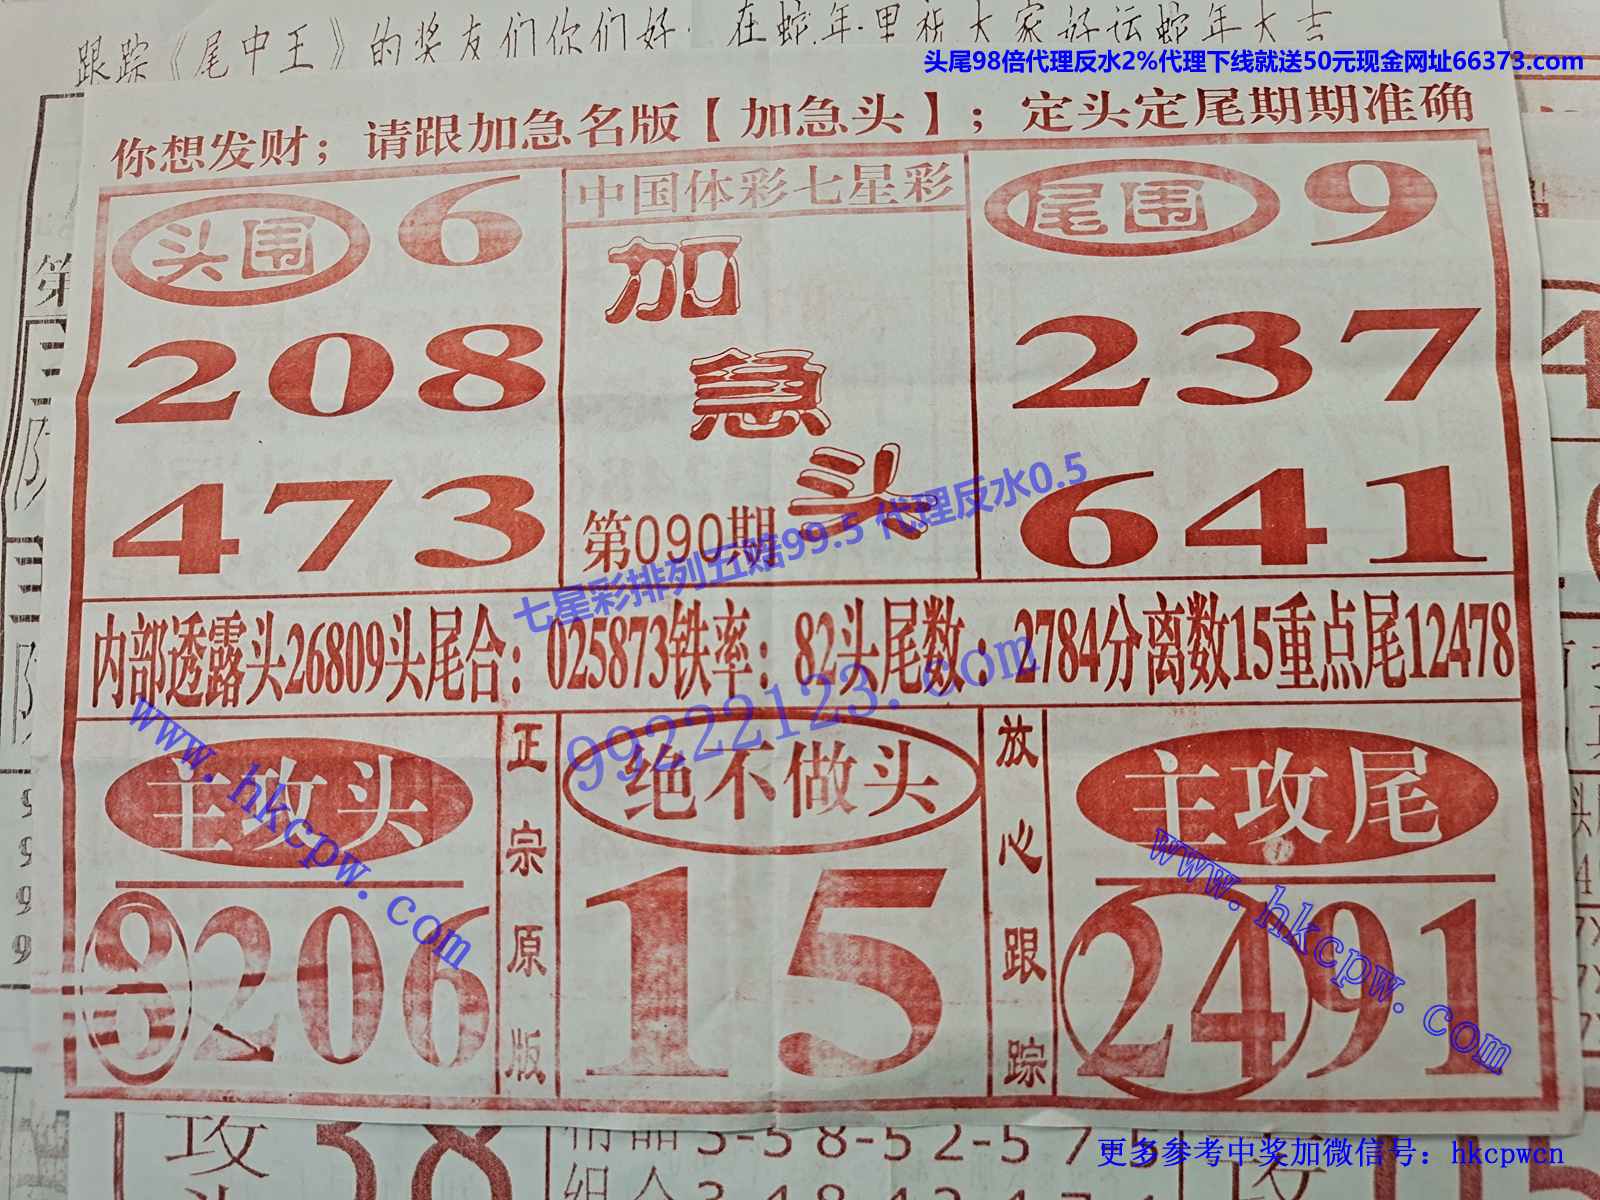 跟踪《尾中王》的奖友们你们好：在蛇年里祝大家好运蛇年大吉
头尾98倍代理反水2%代理下线就送50元现金网址66373.com
你想发财；请跟加急名版【加急头】；定头定尾期期准确
头围 6
208
473
中国体彩七星彩
加急头
第090期
尾围 9
237
641
七星彩排列五赔99.5 代理反水0.5
内部透露头26809头尾合：025873铁率：82头尾数：2784分离数15重点尾12478
99222123.com
www.hkcpw.com
主攻头
8206
正宗原版
绝不做头
15
放心跟踪
主攻尾
2491
www.hkcpw.com
第
攻 38
3-58-52-57-5
更多参考中奖加微信号：hkcpwcn